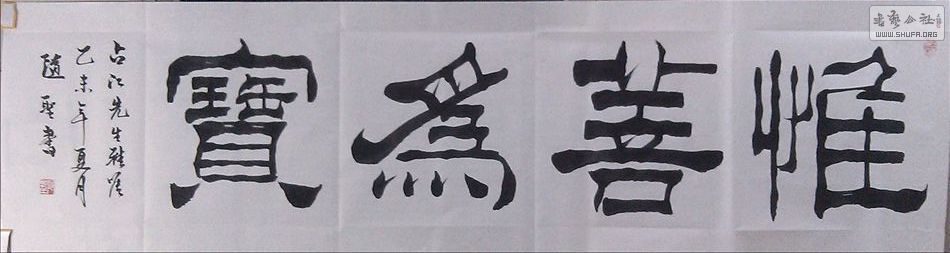 惟善為寶
占江先生雅鉴
乙未年夏月
随圣书
书艺公社
WWW.SHUFA.ORG